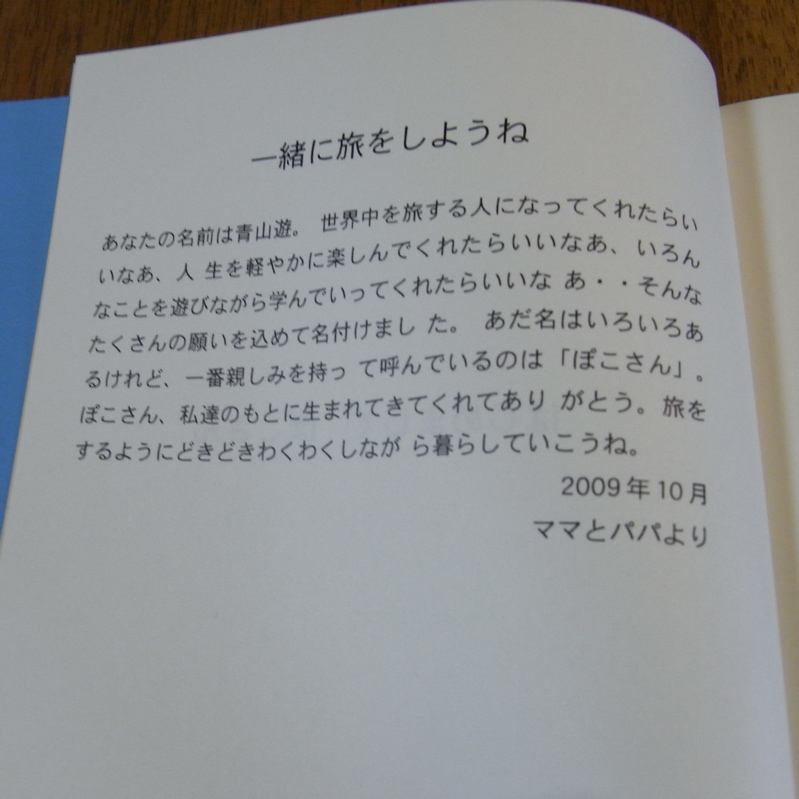 一緒に旅をしようね
あなたの名前は青山遊。 世界中を旅する人になってくれたらい
いなあ、人 生を軽やかに楽しんでくれたらいいなあ、いろん
なことを遊びながら学んでいってくれたらいいな あ・・そんな
たくさんの願いを込めて名付けまし た。 あだ名はいろいろあ
るけれど、一番親しみを持っ て呼んでいるのは「ぽこさん」。
ぽこさん、私達のもとに生まれてきてくれてあり がとう。旅を
するようにどきどきわくわくしなが ら暮らしていこうね。
2009年10月
ママとパパより